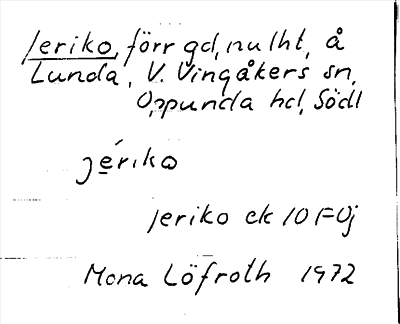 Jeriko, förr gd, nu lht, å
Lunda, V. Vingåkers sn,
Oppunda hd, Södl
jériko
Jeriko ek 10F0j
Mona Löfroth 1972